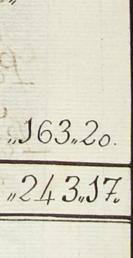 „163„20.
„243„17.